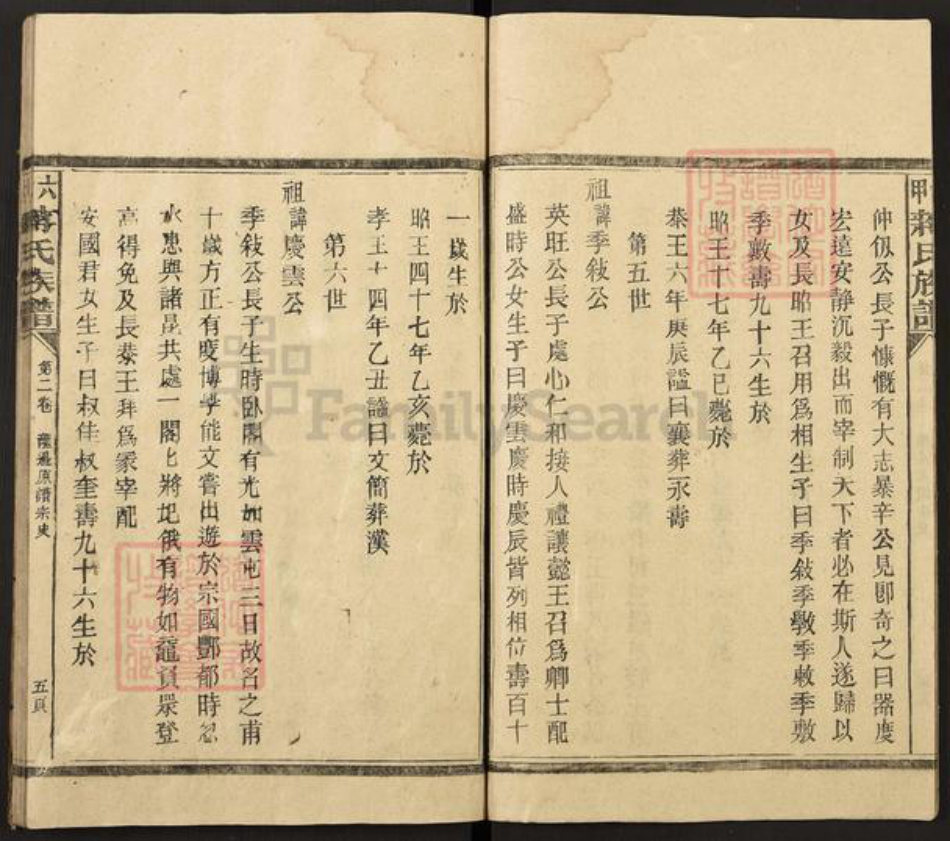 蔣氏族譜
仲伋公長子慷慨有大志暴辛公見卽奇之曰器度
宏遠安静沉毅出而宰制天下者必在斯人遂歸以
女及長昭王召用爲相生子曰季敍季斆季敕季敷
季斆壽九十六生於
昭王十七年乙巳薨於
恭王六年庚辰諡曰襄葬永壽
第五世
祖諱季敍公
英旺公長子處心仁和接人禮讓懿王召爲卿士配
盛時公女生子曰慶雲慶時慶辰皆列相位壽百十
一歲生於
昭王四十七年乙亥薨於
孝王十四年乙丑諡曰文簡葬漢
第六世
祖諱慶雲公
季敍公長子生時卧閣有光如雲屯三日故名之甫
十歲方正有度博學能文嘗出遊於宗國酆都時忽
水患與諸昆共處一閣七將圯俄有物如黿負眾登
高得免及長恭王拜爲冢宰配
安國君女生子曰叔佳叔奎壽九十六生於
六
蔣氏族譜
第二卷
五頁
FamilySearch